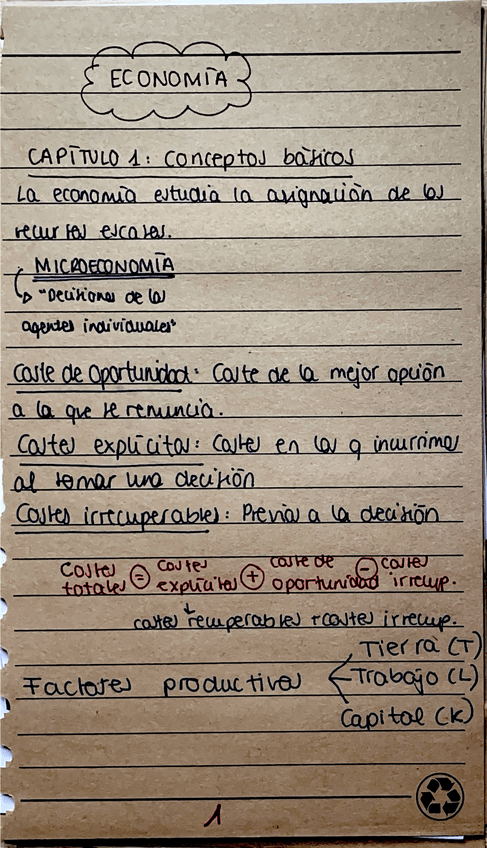 ECONOMÍA
CAPÍTULO 1: Conceptos básicos
La economía estudia la asignación de los
recursos escasos.
MICROECONOMÍA
"Decisiones de los
agentes individuales"
Coste de oportunidad: Coste de la mejor opción
a la que se renuncia.
Costes explícitos: Costes en los q incurrimos
al tomar una decisión
Costes irrecuperables: Previos a la decisión
Costes totales = costes explícitos + coste de oportunidad - costes irrecup.
costes recuperables + costes irrecup.
Factores productivos
Tierra (T)
Trabajo (L)
Capital (K)
1